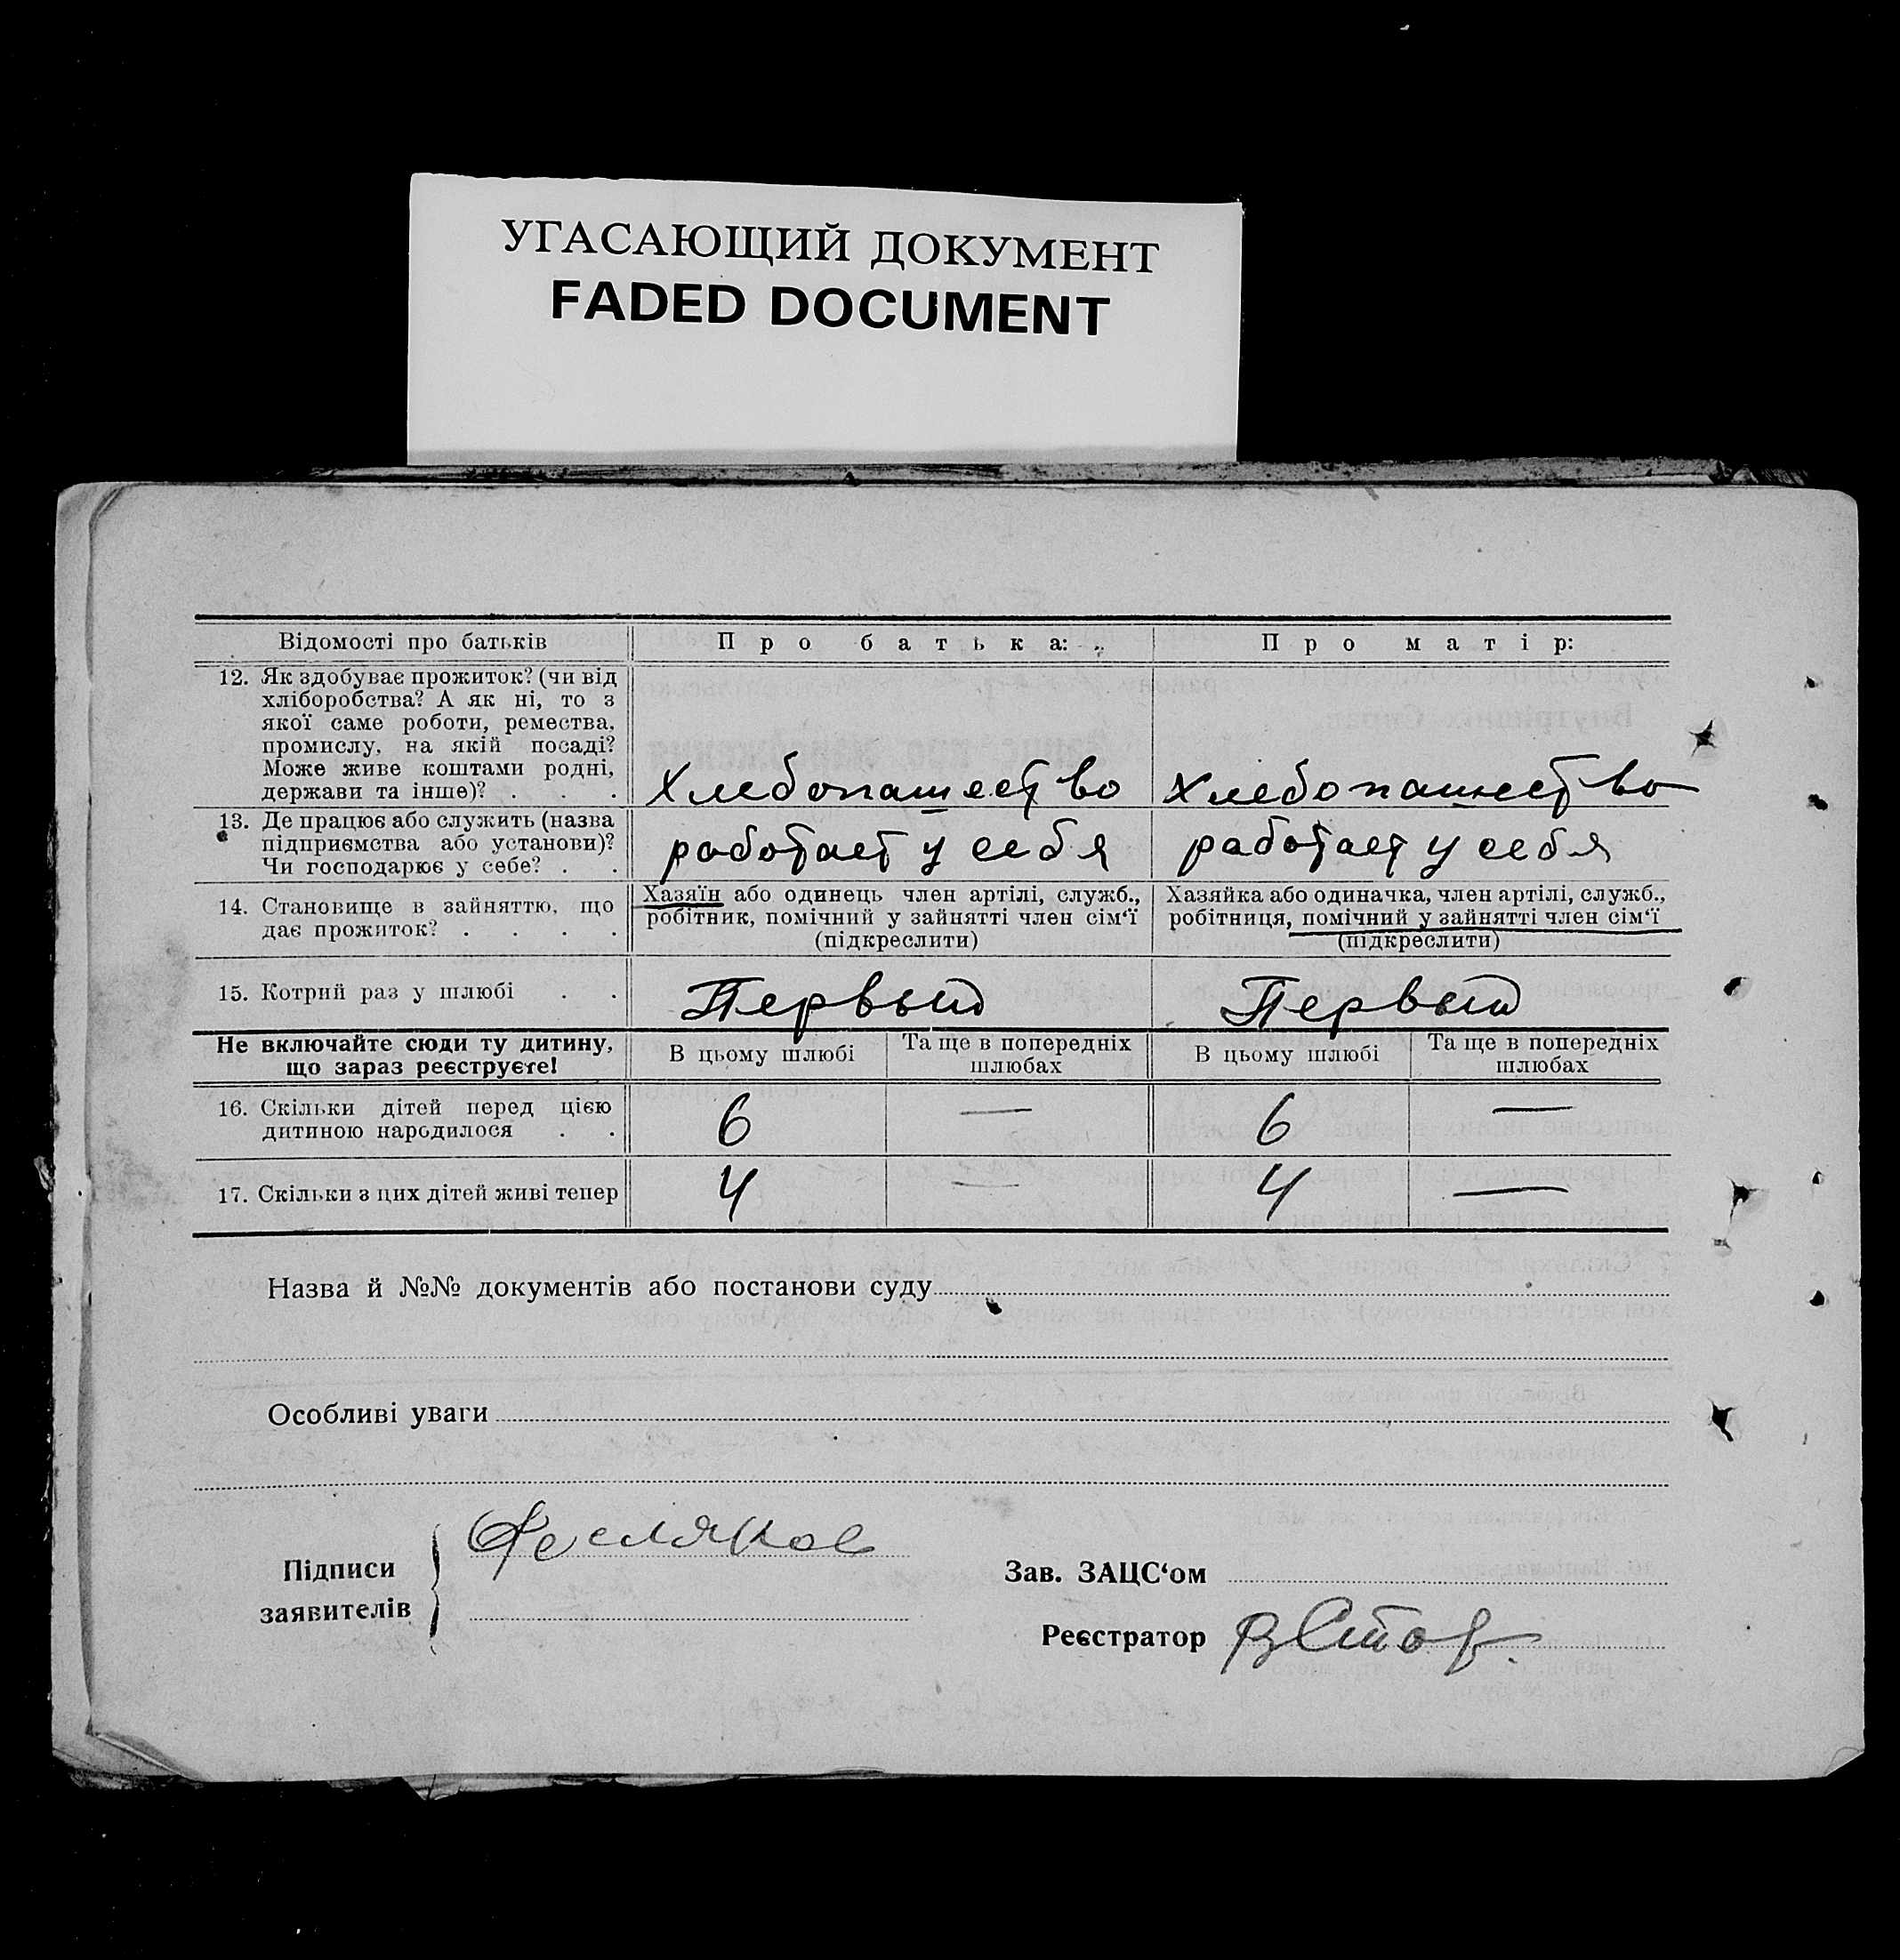 УГАСАЮЩИЙ ДОКУМЕНТ
FADED DOCUMENT
Відомості про батьків
Про батька:
Про матір:
12. Як здобуває прожиток? (чи від
хліборобства? А як ні, то з
якої саме роботи, ремества,
промислу, на якій посаді?
Може живе коштами родні,
держави та інше)? . . .
Хлебопашество
Хлебопашество
13. Де працює або служить (назва
підприємства або установи)?
Чи господарює у себе? . .
работает у себя
работает у себя
14. Становище в зайняттю, що
дає прожиток? . . . .
Хазяїн або одинець член артілі, служб.,
робітник, помічний у зайнятті член сім‘ї
(підкреслити)
Хазяйка або одиначка, член артілі, служб.,
робітниця, помічний у зайнятті член сім‘ї
(підкреслити)
15. Котрий раз у шлюбі . .
Первый
Первый
Не включайте сюди ту дитину,
що зараз реєструєте!
В цьому шлюбі
Та ще в попередніх
шлюбах
В цьому шлюбі
Та ще в попередніх
шлюбах
16. Скільки дітей перед цією
дитиною народилося . .
6
—
6
—
17. Скільки з цих дітей живі тепер
4
—
4
—
Назва й №№ документів або постанови суду
Особливі уваги
Підписи
заявителів
Зав. ЗАЦС‘ом
Реєстратор